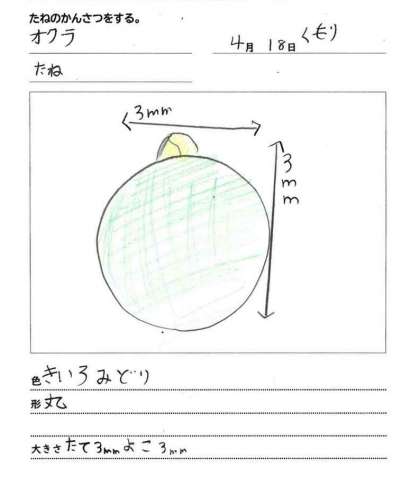 たねのかんさつをする。
オクラ
4月 18日 くもり
たね
3mm
3mm
色 きいろ みどり
形 丸
大きさ たて 3mm よこ 3mm